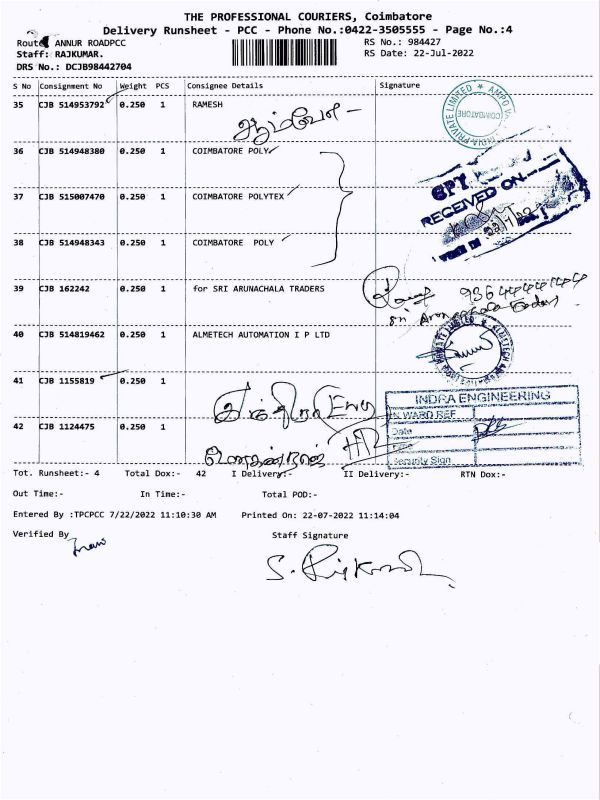 THE PROFESSIONAL COURIERS, Coimbatore
Delivery Runsheet - PCC - Phone No.:0422-3505555 - Page No.:4
Route ANNUR ROADPCC
RS No.: 984427
Staff: RAJKUMAR.
RS Date: 22-Jul-2022
DRS No.: DCJB98442704
S No Consignment No Weight PCS Consignee Details Signature
35 CJB 514953792 0.250 1 RAMESH
PRIVATE LIMITED ★
COIMBATORE
36 CJB 514948380 0.250 1 COIMBATORE POLY
RECEIVED ON
37 CJB 515007470 0.250 1 COIMBATORE POLYTEX
38 CJB 514948343 0.250 1 COIMBATORE POLY
39 CJB 162242 0.250 1 for SRI ARUNACHALA TRADERS
40 CJB 514819462 0.250 1 ALMETECH AUTOMATION I P LTD
41 CJB 1155819 0.250 1
INDRA ENGINEERING
INWARD REF
42 CJB 1124475 0.250 1
Date
Time
Security Sign
Tot. Runsheet:- 4 Total Dox:- 42 I Delivery:- II Delivery:- RTN Dox:-
Out Time:- In Time:- Total POD:-
Entered By :TPCPCC 7/22/2022 11:10:30 AM Printed On: 22-07-2022 11:14:04
Verified By Staff Signature